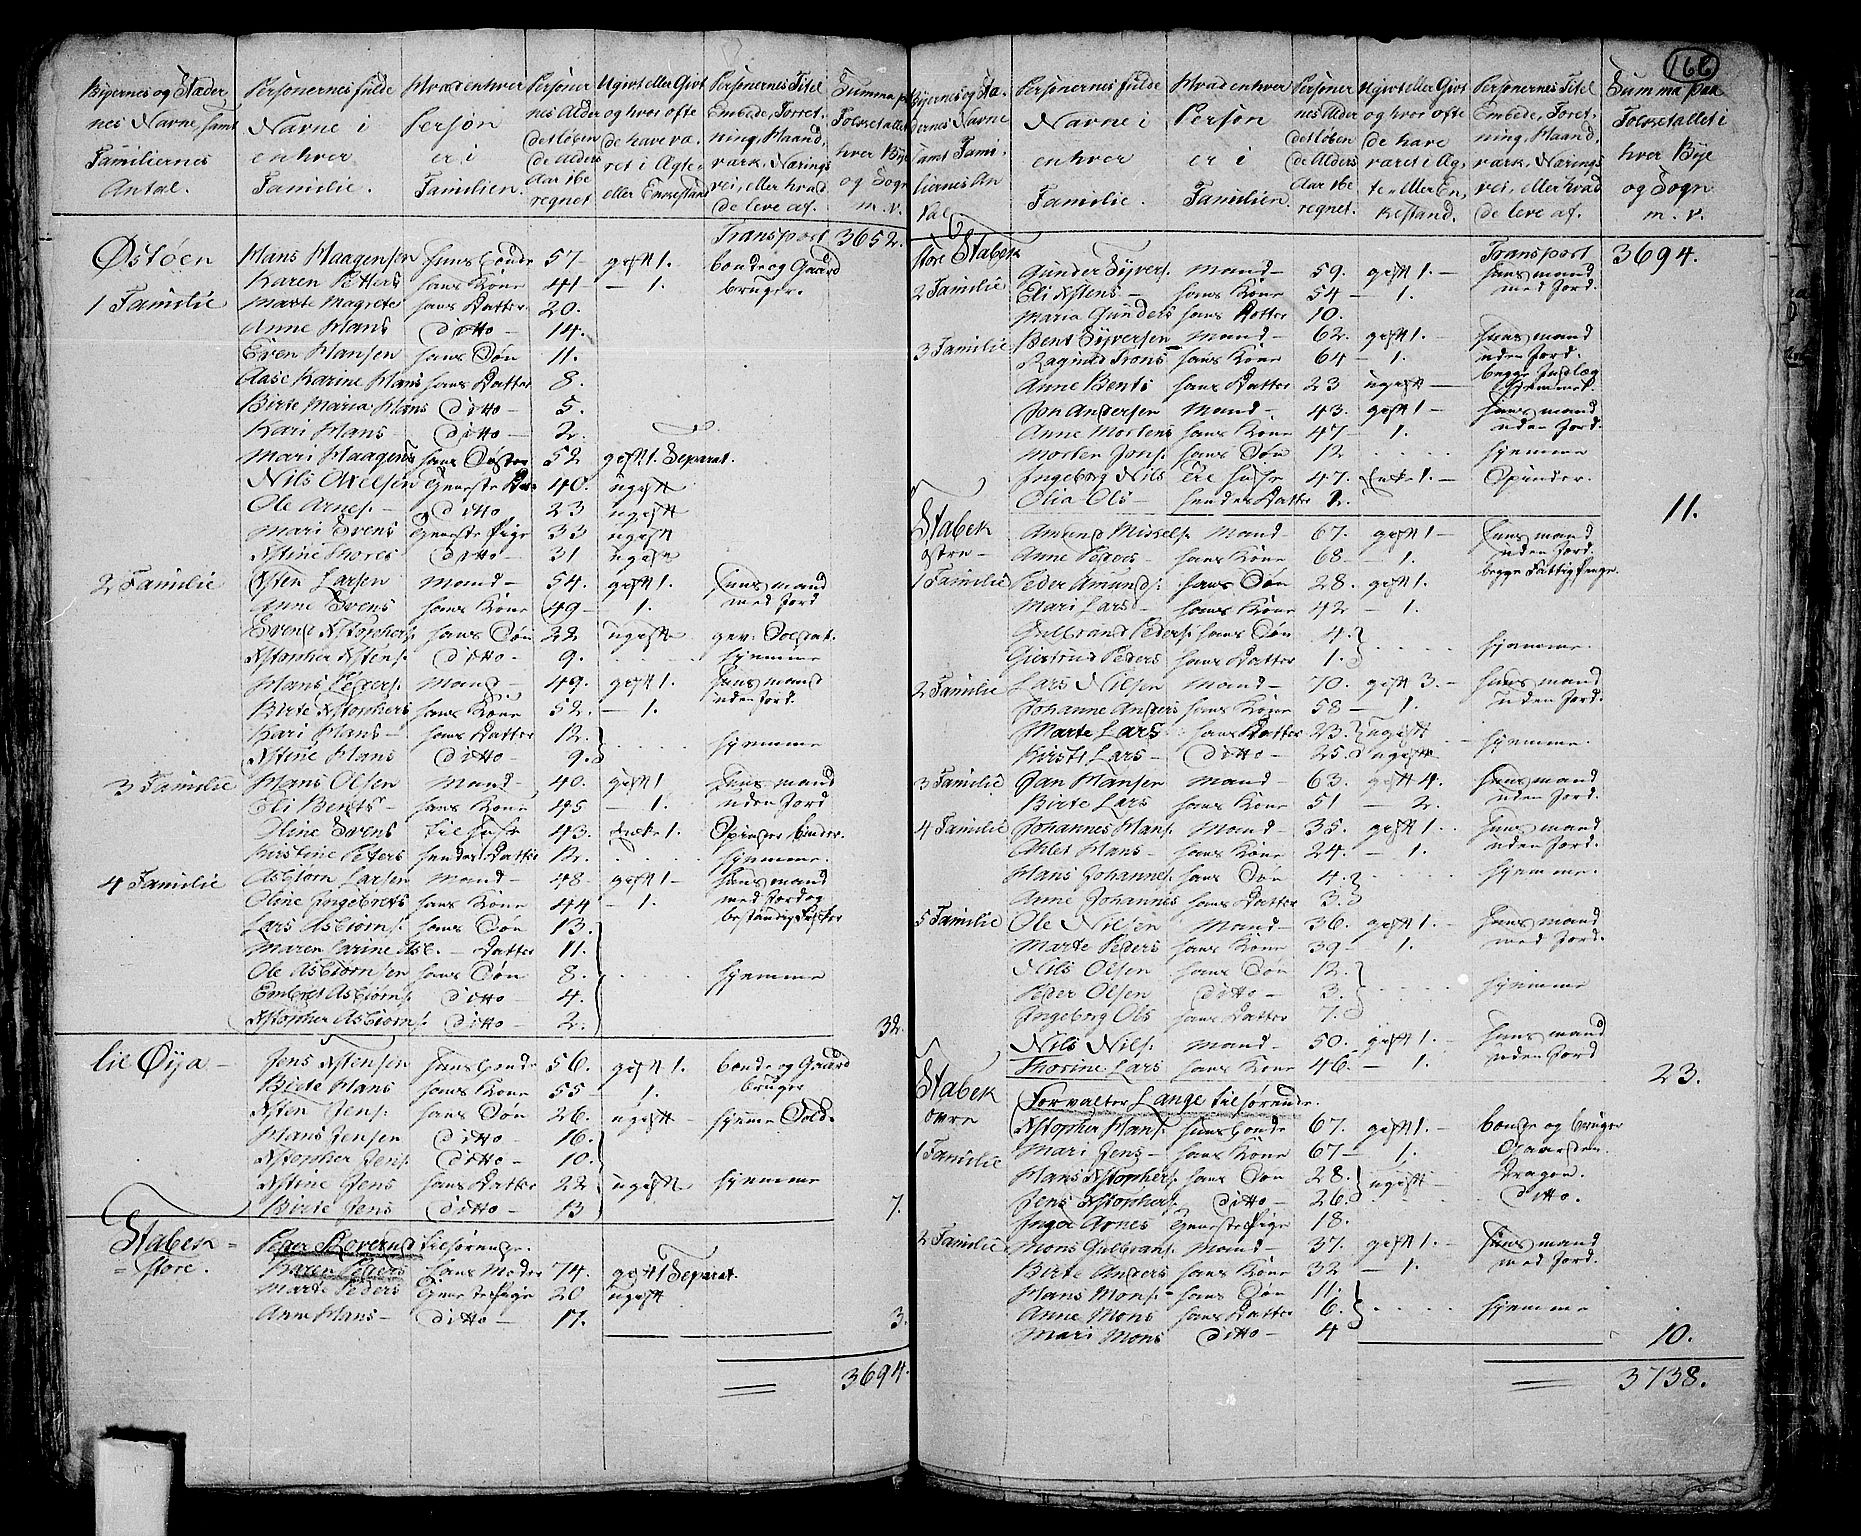 Byernes og Stæder
nes Navne samt
Familiernes
Antal.
Personernes fulde
Navne i
enhver
Familie.
Hvad enhver
Person
er i
Familien.
Personer
nes Alder
det løben
de Alders
Aar ibe
regnet
Ugivt eller Givt
og hvor ofte
de have væ
ret i Ægte
eller Enkestand
Personernes Titel
Embede, Forret
ning, Haand
værk, Nærings
vei, eller hvad
de leve af.
Summa p
Folketallet
hver Bye
og Sogn
m. v.
Transport 3652.
Østøen Hans Haagensen huus bonde 57 gift 1. bonde og Gaard
Karen Petters hans Kone 41 — 1. bruger.
1 Familie Marte Magrete hans Datter 20.
Anne Hans ditto — 14.
Even Hansen hans Søn 11.
Aase Karine Hans hans Datter 8.
Birte Maria Hans ditto — 5.
Kari Hans ditto — 2.
Mari Haagens hans Søster 52 gift 1. Separat.
Nils Oxelsen tieneste Dreng 40. ugift
Ole Arnes. — ditto 23 ugift
Mari Evens tieneste Pige 33 ugift
Xstine Thores ditto — 31 ugift
2 Familie Xsten Larsen mand — 54. gift 1. huus mand
Anne Evens hans Kone 49 — 1. med Jord
Even Xstophers. hans Søn 22 ugift gev: Soldat.
Xstopher Xstens. ditto — 9. hjemme
Hans Peders. mand — 49. gift 1. huus mand
Birte Xstophers hans Kone 52. — 1. uden Jord.
Kari Hans — hans Datter 12.
Xstine Hans ditto — 9. hjemme
3 Familie Hans Olsen mand — 40. gift 1 huus mand
Eli Bents — hans Kone 45 — 1. uden Jord
Oline Evens til huse 43. Enke 1. Spinder binder.
Kirstine Peters hendes Datter 12. hjemme.
4 Familie Asbiørn Larsen mand — 48. gift 1 — huus mand
Oline Ingebrets hans Kone 44 — 1. med Jord og
Lars Asbiørns. hans Søn 13. beständig
Maren Carine Asb. — Datter 11.
Ole Asbiørnsen hans Søn 8. hjemme
Embret Asbiørns. ditto — 4.
Xstopher Asbiørns. ditto — 2.
32.
lil Øya — Jens Xstensen huus bonde 56. gift 1. bonde og Gaard
Birte Hans hans Kone 55 — 1. bruger
Xsten Jens. hans Søn 26. ugift — hjeme Sold:
Hans Jensen ditto — 16.
Xstopher Jens. ditto — 10.
Xstine Jens hans Datter 22 ugift hjemme
Birte Jens ditto 13
7.
Stabek = Peder Roverud tilhørende.
= store. Karen Peders hans Moder 74. gift 1 Separat.
Marte Peders tieneste Pige 20 ugift
Anne Hans — ditto — 17.
3.
3694.
166
Byernes og Stæ
dernes Navne
samt Fami
liernes An
tal
Personernes fulde
Navne i
enhver
Familie.
Hvad enhver
Person
er i
Familien
Personer
nes Alder
det løben
de Alders
Aar ibe
regnet.
Ugivt eller Givt
og hvor ofte
de have
været i Æg,
te- eller En,
kestand.
Personernes Titel
Embede, Foret
ning, Haand
værk, Nærings
vei, eller hvad
de leve af.
Summa paa
Folketallet i
hver Bye
og Sogn
m. v.
Transport 3694.
store Stabek
2 Familie Gunder Syvers. mand — 59. gift 1. — huus mand
Eli Xstens — hans Kone 54 — 1. med Jord.
Maria Gunders hans Dotter 10.
3 Familie Bent Syversen mand — 62. gift 1. huus mand
Ragnild Trons hans Kone 64 — 1. uden Jord.
begge Indlæg
Anne Bents hans Datter 23 ugift — hjemme.
Jon Andersen mand — 43. gift 1 — huus mand
Anne Mortens hans Kone 47 — 1. uden Jord.
Morten Jons. hans Søn 12. hjemme
Ingeborg Nils til huse 47. Enke 1. — Spinder.
Olia Ols — hendes Datter 2.
11.
Stabek Amund Mikkels. mand — 67. gift 1 — huus mand
østre — Anne Peders hans Kone 68 — 1. uden Jord.
begge Fattig Penge.
1 Familie Peder Amunds. hans Søn 28. gift 1.
Mari Lars — hans Kone 42 — 1.
Gulbrand Peders. hans Søn 4.
Giertrud Peders hans Datter 1. hjemme.
2 Familie Lars Nilsen mand — 70. gift 3. — huus mand
Johanne Anders hans Kone 58 — 1. uden Jord.
Marte Lars hans Datter 23. ugift
Kirsti Lars ditto — 25. ugift hjemme.
3 Familie Jan Hansen mand — 63. gift 4. huus mand
Birte Lars hans Kone 51 — 2. uden Jord.
4 Familie Johannes Hans. mand — 35. gift 1. huus mand
Hans — hans Kone 24. — 1. uden Jord.
Hans Johannes. hans Søn 4. hjemme.
Anne Johannes hans Datter 3.
5 Familie Ole Nilsen mand — 36. gift 1. huus mand
Marte Peders hans Kone 39 — 1. med Jord.
Nils Olsen hans Søn 12.
Peder Olsen ditto — 3. hjemme
Ingeborg Ols hans Datter 7.
Nils Nils. mand — 50. gift 1. huus mand
Thorine Lars hans Kone 46. — 1. uden Jord
23.
Stabek Forvalter Lange tilhørende.
øvre Xstopher Hans. huus bonde 67. gift 1. — bonde og bruger
1 Familie Mari Jens — hans Kone 67 — 1. Gaarden.
Hans Xstophers. hans Søn 28. ugift — Dragon.
Jens Xstophers. ditto — 26. ditto.
Inga Arnes tieneste Pige 18.
2 Familie Mons Gulbrans. mand — 37. gift 1. — huus mand
Birte Anders hans Kone 32 — 1. med Jord.
Hans Mons. hans Søn 11.
Anne Mons hans Datter 6. hjemme
Mari Mons ditto — 4
10.
3738.